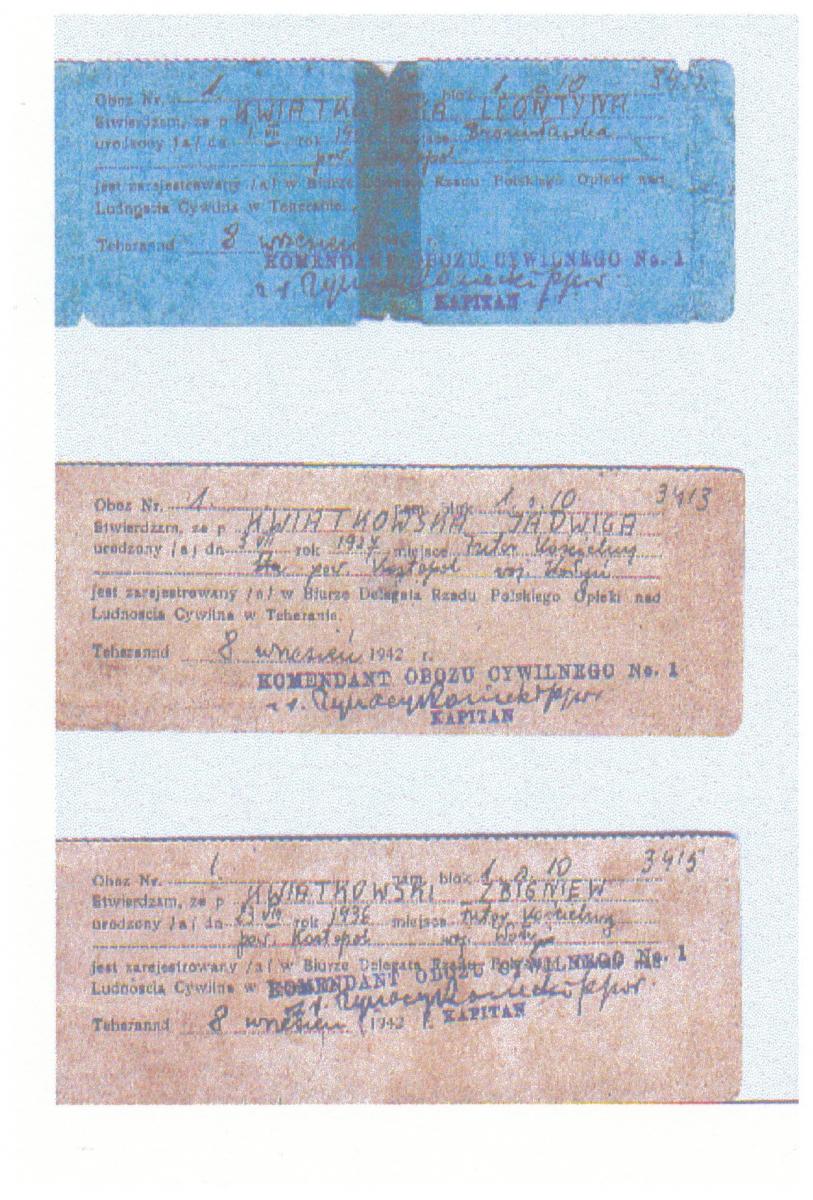 Oboz Nr. 1. blok 1. 10 34
Stwierdzam, ze p KWIATKOWSKA LEONTYNA
urodzony /a/ dn 1 VII rok miejsce Bronisławka
pow. Kostopol
jest zarejestrowany /a/ w Biurze Delegata Rzadu Polskiego Opieki nad
Ludnoscia Cywilna w Teheranie.
Teherannd 8 wrzesień r.
KOMENDANT OBOZU CYWILNEGO No. 1
KAPITAN
Oboz Nr. 1. blok 1. 10 3413
Stwierdzam, ze p KWIATKOWSKA JADWIGA
urodzony /a/ dn 3 VII rok 1937 miejsce Futor Kościelny
pow. Kostopol woj. Wołyń
jest zarejestrowany /a/ w Biurze Delegata Rzadu Polskiego Opieki nad
Ludnoscia Cywilna w Teheranie.
Teherannd 8 wrzesień 1942 r.
KOMENDANT OBOZU CYWILNEGO No. 1
KAPITAN
Oboz Nr. 1. blok 1. 10 3415
Stwierdzam, ze p KWIATKOWSKI ZBIGNIEW
urodzony /a/ dn 23 rok 1936 miejsce Futor Kościelny
pow. Kostopol woj.
jest zarejestrowany /a/ w Biurze Delegata Rzadu
KOMENDANT OBOZU CYWILNEGO No. 1
Ludnoscia Cywilna w
KAPITAN
Teherannd 8 wrzesień 1942 r.